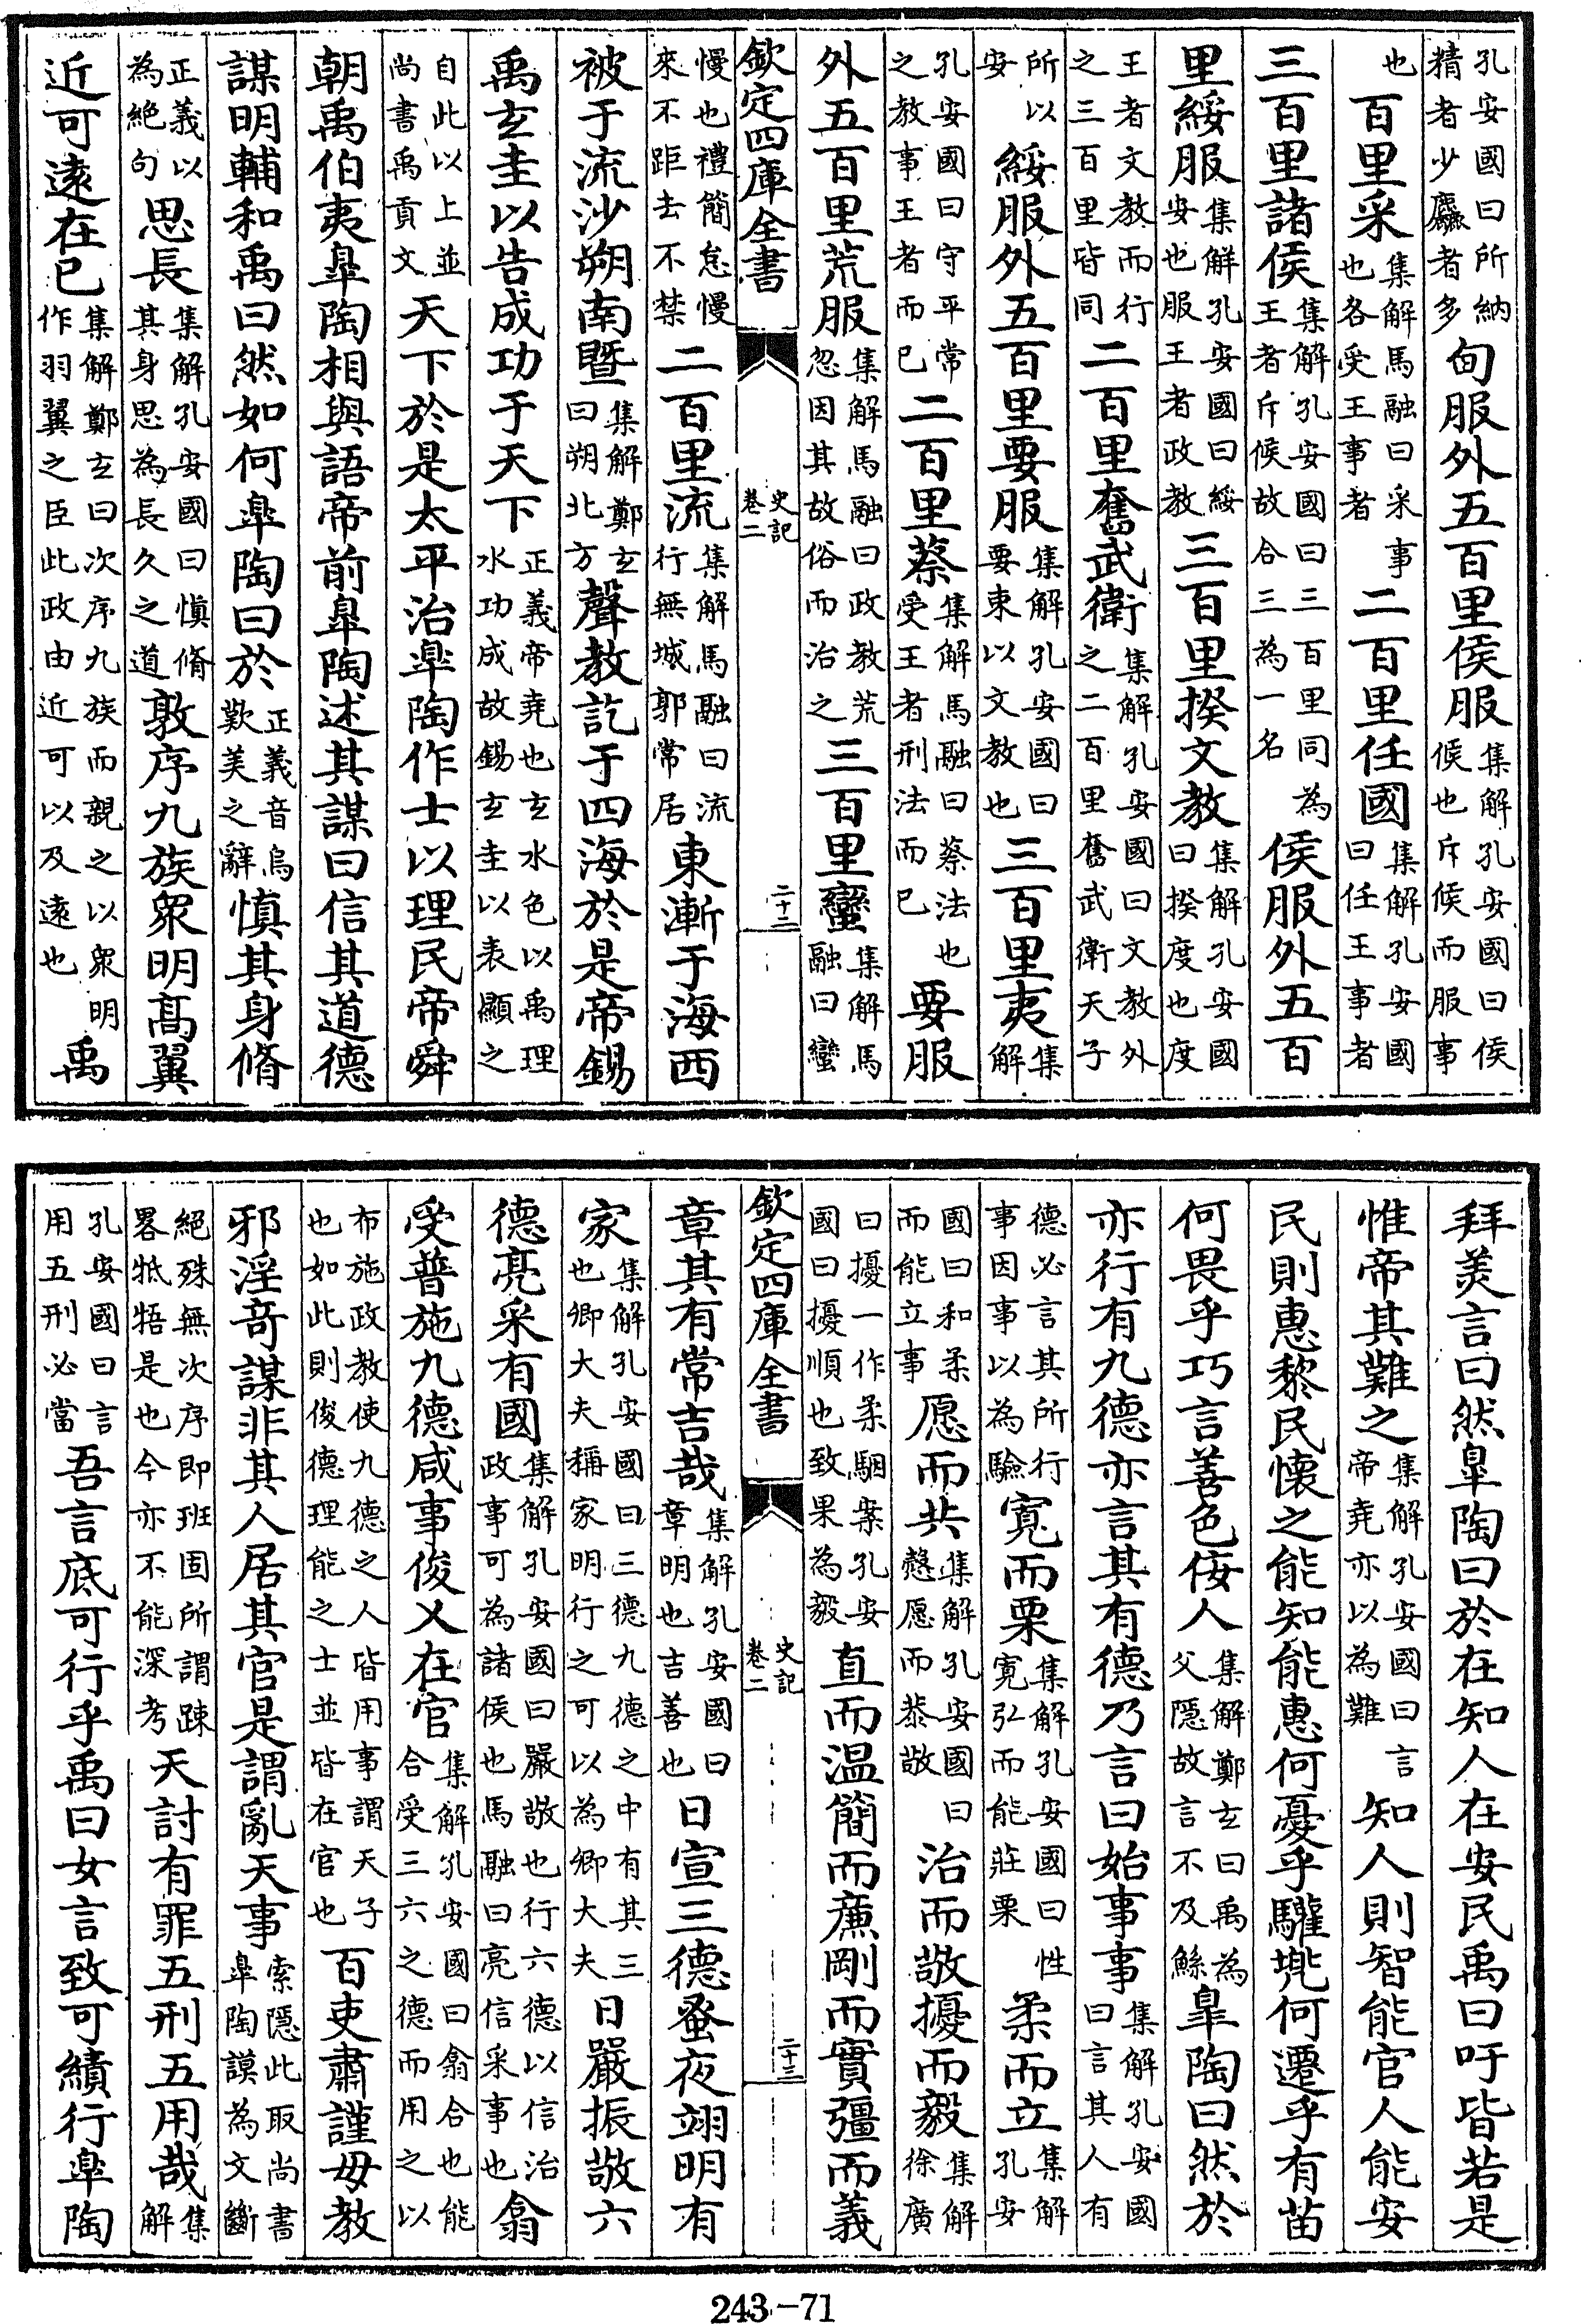 孔安國曰所納精者少麤者多甸服外五百里侯服集解孔安國曰侯候也斥候而服事
也百里采集解馬融曰采事也各受王事者二百里任國集解孔安國曰任王事者
三百里諸侯集解孔安國曰三百里同為王者斥候故合三為一名侯服外五百
里綏服集解孔安國曰綏安也服王者政教三百里揆文教集解孔安國曰揆度也度
王者文教而行之三百里皆同二百里奮武衛集解孔安國曰文教外之二百里奮武衛天子
所以安綏服外五百里要服集解孔安國曰要束以文教也三百里夷集解
孔安國曰守平常之教事王者而已二百里蔡集解馬融曰蔡法也受王者刑法而已要服
外五百里荒服集解馬融曰政教荒忽因其故俗而治之三百里蠻集解馬融曰蠻
欽定四庫全書 史記卷二 二十二
慢也禮簡怠慢來不距去不禁二百里流集解馬融曰流行無城郭常居東漸于海西
被于流沙朔南暨集解鄭玄曰朔北方聲教訖于四海於是帝錫
禹玄圭以告成功于天下正義帝堯也玄水色以禹理水功成故錫玄圭以表顯之
自此以上並尚書禹貢文天下於是太平治皐陶作士以理民帝舜
朝禹伯夷皐陶相與語帝前皐陶述其謀曰信其道德
謀明輔和禹曰然如何皐陶曰於正義音烏歎美之辭慎其身脩
正義以為絶句思長集解孔安國曰慎脩其身思為長久之道敦序九族衆明髙翼
近可逺在已集解鄭玄曰次序九族而親之以衆明作羽翼之臣此政由近可以及逺也禹
拜美言曰然皐陶曰於在知人在安民禹曰吁皆若是
惟帝其難之集解孔安國曰言帝堯亦以為難知人則智能官人能安
民則惠黎民懷之能知能惠何憂乎驩兠何遷乎有苗
何畏乎巧言善色佞人集解鄭玄曰禹為父隱故言不及鯀皐陶曰然於
亦行有九德亦言其有德乃言曰始事事集解孔安國曰言其人有
德必言其所行事因事以為驗寛而栗集解孔安國曰性寛弘而能莊栗柔而立集解孔安
國曰和柔而能立事愿而共集解孔安國曰慤愿而恭敬治而敬擾而毅集解徐廣
曰擾一作柔駰案孔安國曰擾順也致果為毅直而温簡而亷剛而實彊而義
欽定四庫全書 史記卷二 二十三
章其有常吉哉集解孔安國曰章明也吉善也日宣三德蚤夜翊明有
家集解孔安國曰三德九德之中有其三也卿大夫稱家明行之可以為卿大夫日嚴振敬六
德亮采有國集解孔安國曰嚴敬也行六德以信治政事可為諸侯也馬融曰亮信采事也翕
受普施九德咸事俊乂在官集解孔安國曰翕合也能合受三六之德而用之以
布施政教使九德之人皆用事謂天子也如此則俊德理能之士並皆在官也百吏肅謹毋教
邪淫竒謀非其人居其官是謂亂天事索隱此取尚書皐陶謨為文斷
絕殊無次序即班固所謂踈畧牴牾是也今亦不能深考天討有罪五刑五用哉集解
孔安國曰言用五刑必當吾言底可行乎禹曰女言致可績行皐陶
243-71